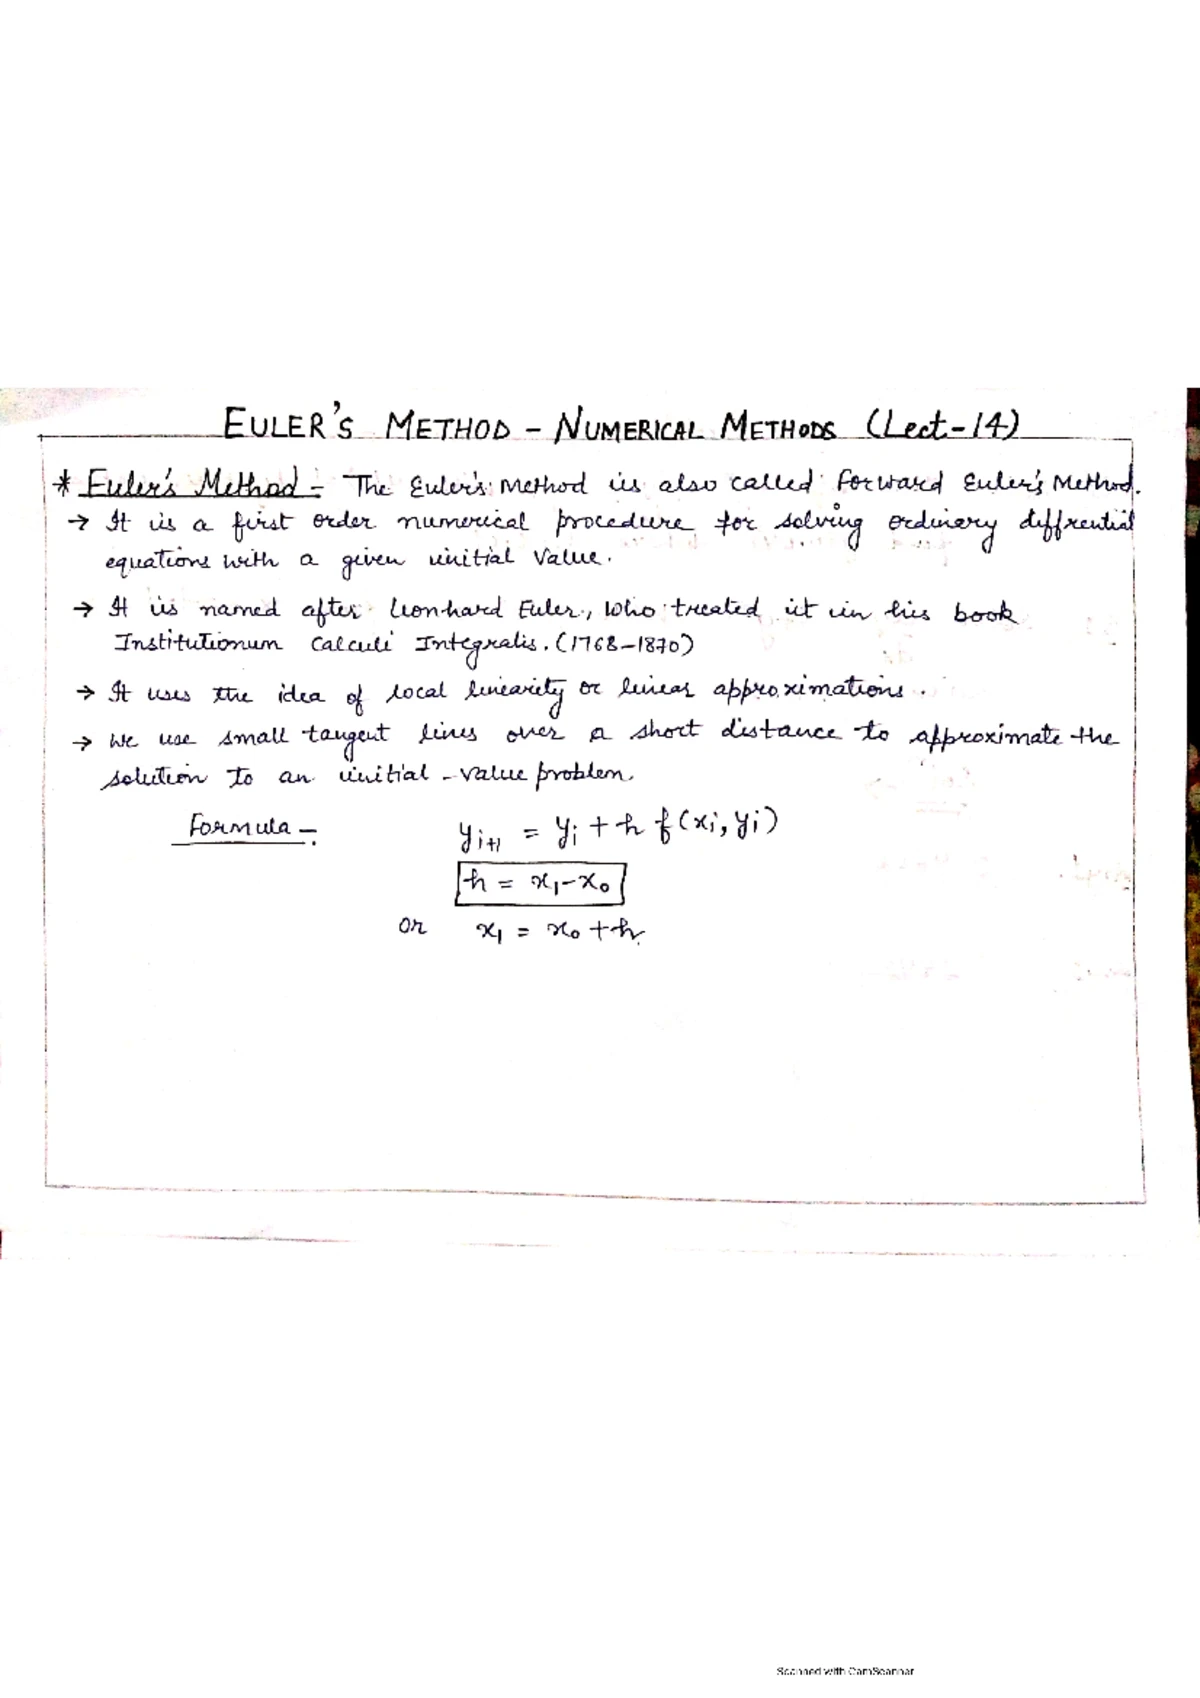 EULER'S METHOD - NUMERICAL METHODS (Lect-14)
* Euler's Method :- The Euler's Method is also called Forward Euler's Method.
→ It is a first order numerical procedure for solving ordinary diffrential
equations with a given initial value.
→ It is named after Leonhard Euler, who treated it in his book
Institutionum Calculi Integralis. (1768-1870)
→ It uses the idea of local linearity or linear approximations.
→ We use small tangent lines over a short distance to approximate the
solution to an initial-value problem.
Formula :- yi+1 = yi + h f(xi, yi)
h = x1-x0
or x1 = x0 + h
Scanned with CamScanner